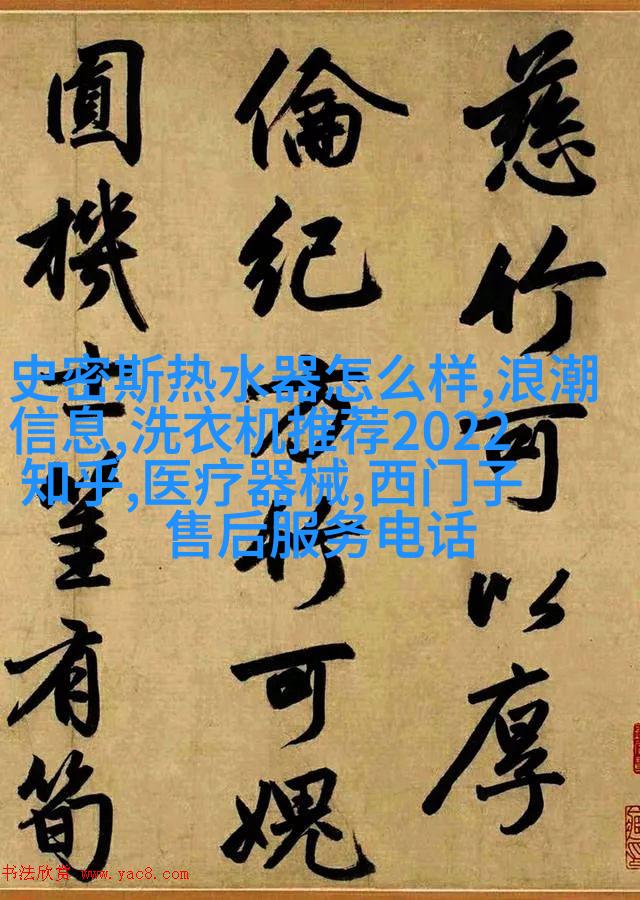 慈竹可以厚
倫紀方竹可媿
圓機士唯有筍
史密斯热水器怎么样,浪潮
信息,洗衣机推荐2022
知乎,医疗器械,西门子
售后服务电话
书法欣赏 www.yac8.com